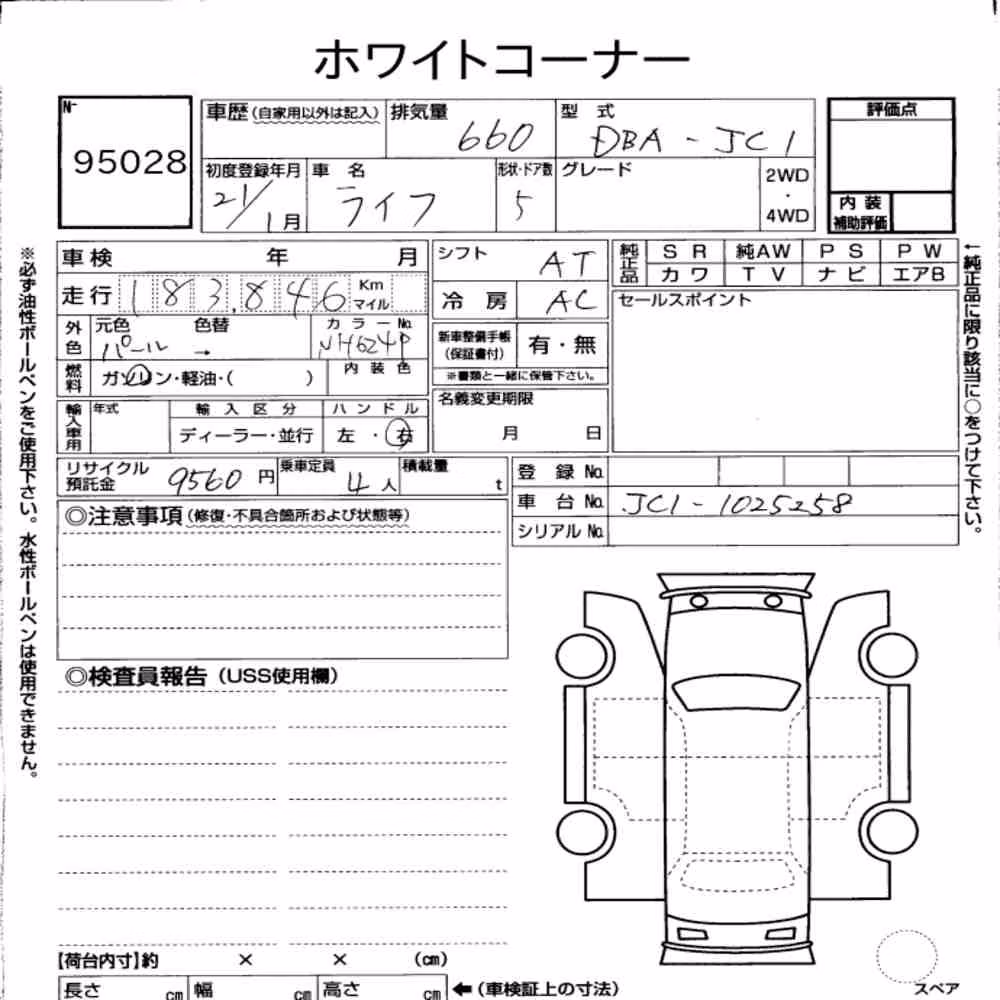 ホワイトコーナー
N- 95028
車歴(自家用以外は記入) 排気量 660 型 式 DBA-JC1
評価点
初度登録年月 21/1月 車 名 ライフ 形状・ドア数 5 グレード 2WD・4WD
内 装 補助評価
車検 年 月
シフト AT
純正品 S R 純AW P S P W
カ ワ T V ナ ビ エアB
走行 183,846 Km マイル
冷 房 AC
セールスポイント
外色 元色 パール 色替 → カ ラ ー No. NH624P
新車整備手帳(保証書付) 有・無
※書類と一緒に保管下さい。
燃料 ガソリン・軽油・( ) 内 装 色
名義変更期限 月 日
輸入車用 年式 輸 入 区 分 ハ ン ド ル
ディーラー・並行 左 ・ 右
リサイクル預託金 9560 円 乗車定員 4 人 積載量 t
登 録 No.
車 台 No. JC1-1025258
シリアル No.
◎注意事項(修復・不具合箇所および状態等)
◎検査員報告(USS使用欄)
【荷台内寸】約 × × (cm)
長さ cm 幅 cm 高さ cm ←(車検証上の寸法)
スペア
※必ず油性ボールペンをご使用下さい。水性ボールペンは使用できません。
←純正品に限り該当に○をつけて下さい。